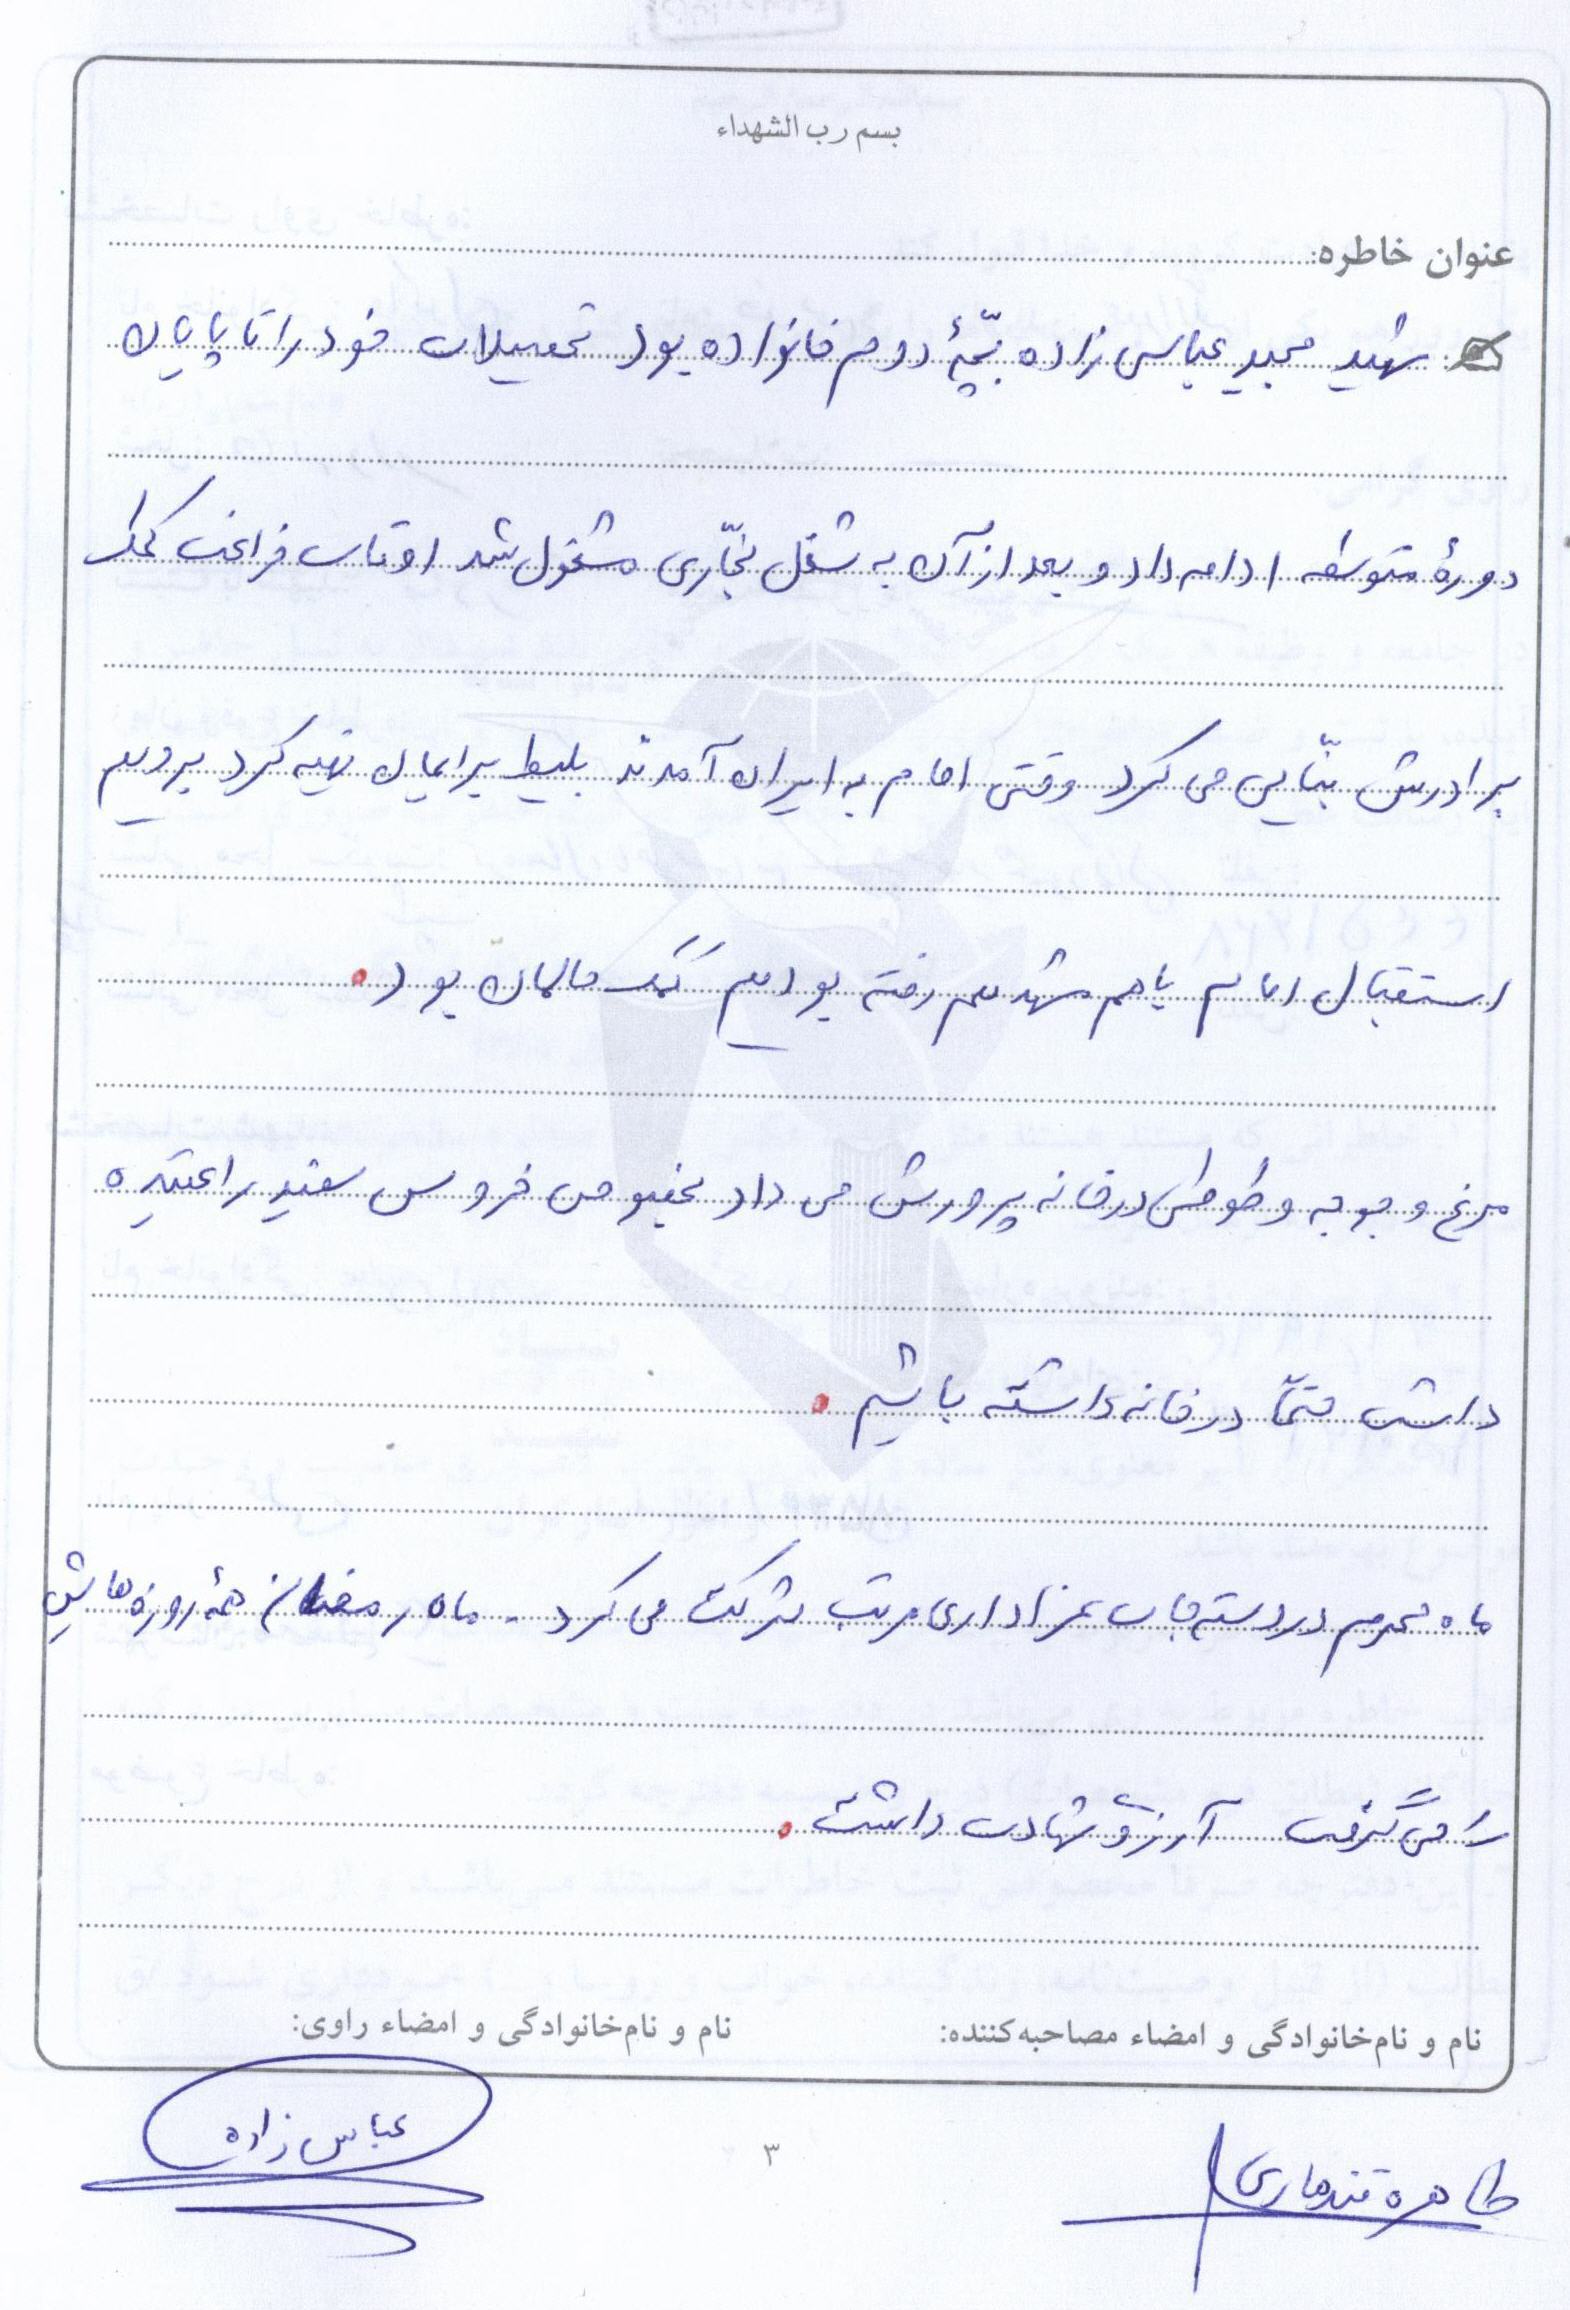 بسم رب الشهداء
عنوان خاطره:
شهید مجید عباسی زاده بچّهٔ دوم خانواده بود تحصیلات خود را تا پایان
دورهٔ متوسطه ادامه داد و بعد از آن به شغل نجّاری مشغول شد اوقات فراغت کمک
برادرش بنّایی می کرد وقتی امام به ایران آمدند بلیط برایمان تهیه کرد برویم
استقبال امام با هم مشهد هم رفته بودیم کمک حالمان بود.
مرغ و جوجه و طوطی در خانه پرورش می داد بخصوص خروس سفید را عقیده
داشت حتماً در خانه داشته باشیم.
ماه محرم در دستجات عزاداری مرتب شرکت می کرد - ماه رمضان همهٔ روزه هایش
را می گرفت آرزوی شهادت داشت.
نام و نام‌خانوادگی و امضاء مصاحبه‌کننده: نام و نام‌خانوادگی و امضاء راوی:
طاهره قندهاری عباس زاده
۳